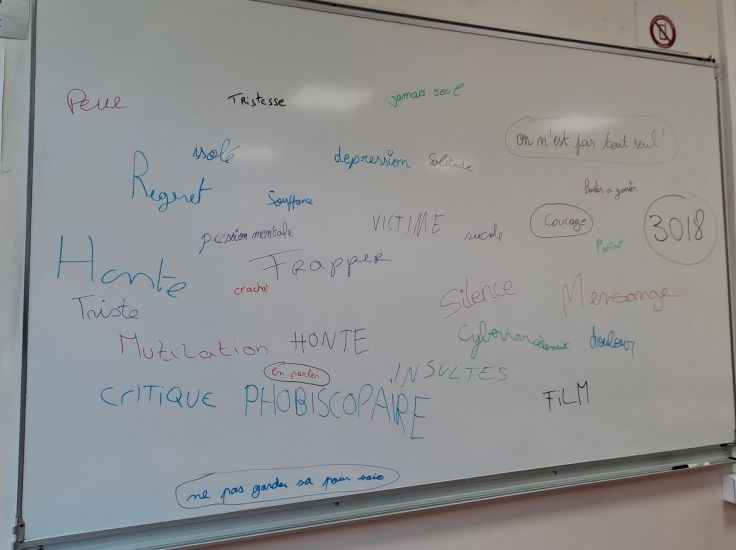 Peur
Tristesse
jamais seul
on n'est pas tout seul!
isolé
depression
Solitude
Regret
Souffrance
Courage
3018
pression mentale
VICTIME
Partout
Frapper
Honte
crachat
Silence
Mensonge
Triste
Mutilation
HONTE
Cyberharcèlement
douleur
en parler
INSULTES
CRITIQUE
PHOBISCOPAIRE
FiLM
ne pas garder sa pour soio